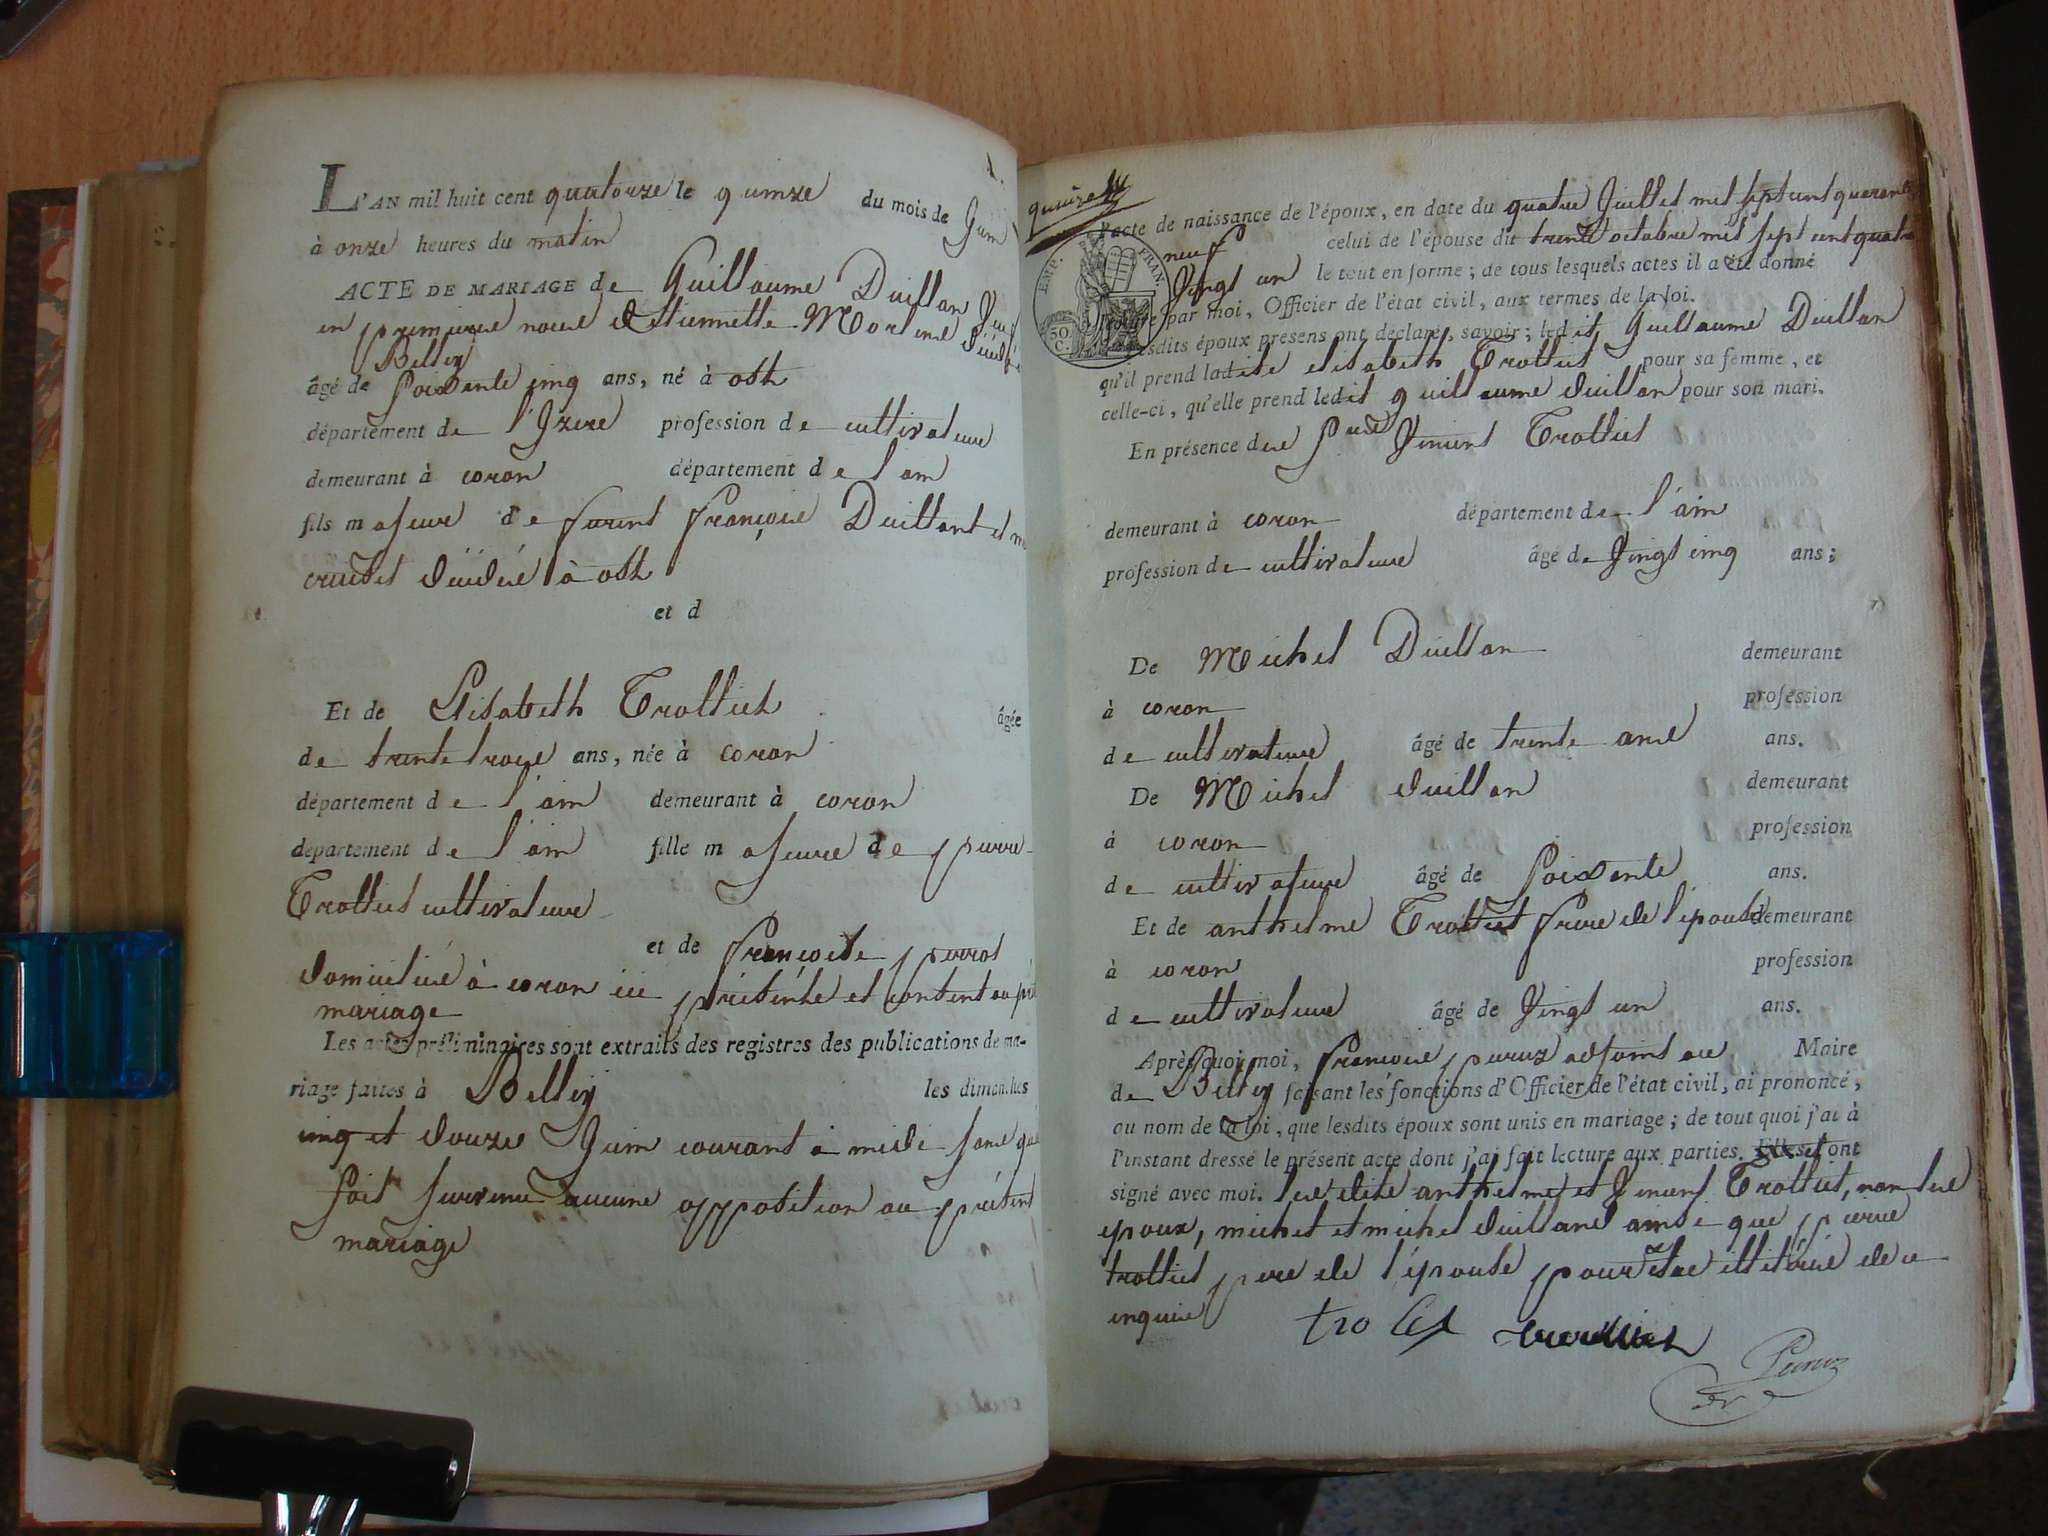 L'AN mil huit cent quatorze le quinze du mois de Juin
à onze heures du matin
ACTE DE MARIAGE de Guillaume Duillan
en premiere noces d'Etiennette
Belley
âgé de soixante cinq ans, né à
département de l'Izere profession de cultivateur
demeurant à coron département de l'ain
fils majeur de furent François Duillant et
décédés à
et d
Et de Elisabeth Trolliet âgée
de trente trois ans, née à coron
département de l'ain demeurant à coron
département de l'ain fille majeure de pierre
Trolliet cultivateur
et de Françoise perrot
domiciliés à coron ici présente et
mariage
Les actes préliminaires sont extraits des registres des publications de ma-
riage faites à Belley les dimanches
cinq et douze Juin courant à midi sans que
soit survenu aucune opposition au présent
mariage
quinze
l'acte de naissance de l'époux, en date du quatre Juillet mil sept cent quarante
neuf celui de l'épouse du trente octobre mil sept cent quatre
Vingt un le tout en forme ; de tous lesquels actes il a été donné
lecture par moi, Officier de l'état civil, aux termes de la loi.
EMP. FRAN.
50 C.
Lesdits époux presens ont déclaré, savoir ; ledit Guillaume Duillan
qu'il prend ladite elisabeth Trolliet pour sa femme, et
celle-ci, qu'elle prend ledit guillaume duillan pour son mari.
En présence des Vincent Trolliet
demeurant à coron département de l'ain
profession de cultivateur âgé de Vingt cinq ans ;
De Michel Duillan demeurant
à coron profession
de cultivateur âgé de trente ans.
De Michel duillan demeurant
à coron profession
de cultivateur âgé de soixante ans.
Et de anthelme Trolliet frere de l'épouse demeurant
à coron profession
de cultivateur âgé de Vingt un ans.
Après quoi moi, François peruz adjoint au Maire
de Belley faisant les fonctions d'Officier de l'état civil, ai prononcé,
au nom de la loi, que lesdits époux sont unis en mariage ; de tout quoi j'ai à
l'instant dressé le présent acte dont j'ai fait lecture aux parties. ont
signé avec moi. les dits anthelme et Vincent Trolliet, non les
epoux, michel et michel duilland ainsi que pierre
trolliet pere de l'épouse pour etre illitérés de ce
enquis
Peruz